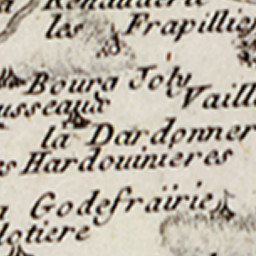 Renauderie
les Frapillie
Bourg Joly
usseaux Vaill
la Dardonner
s Hardouinieres
a Godefrairie
lotiere